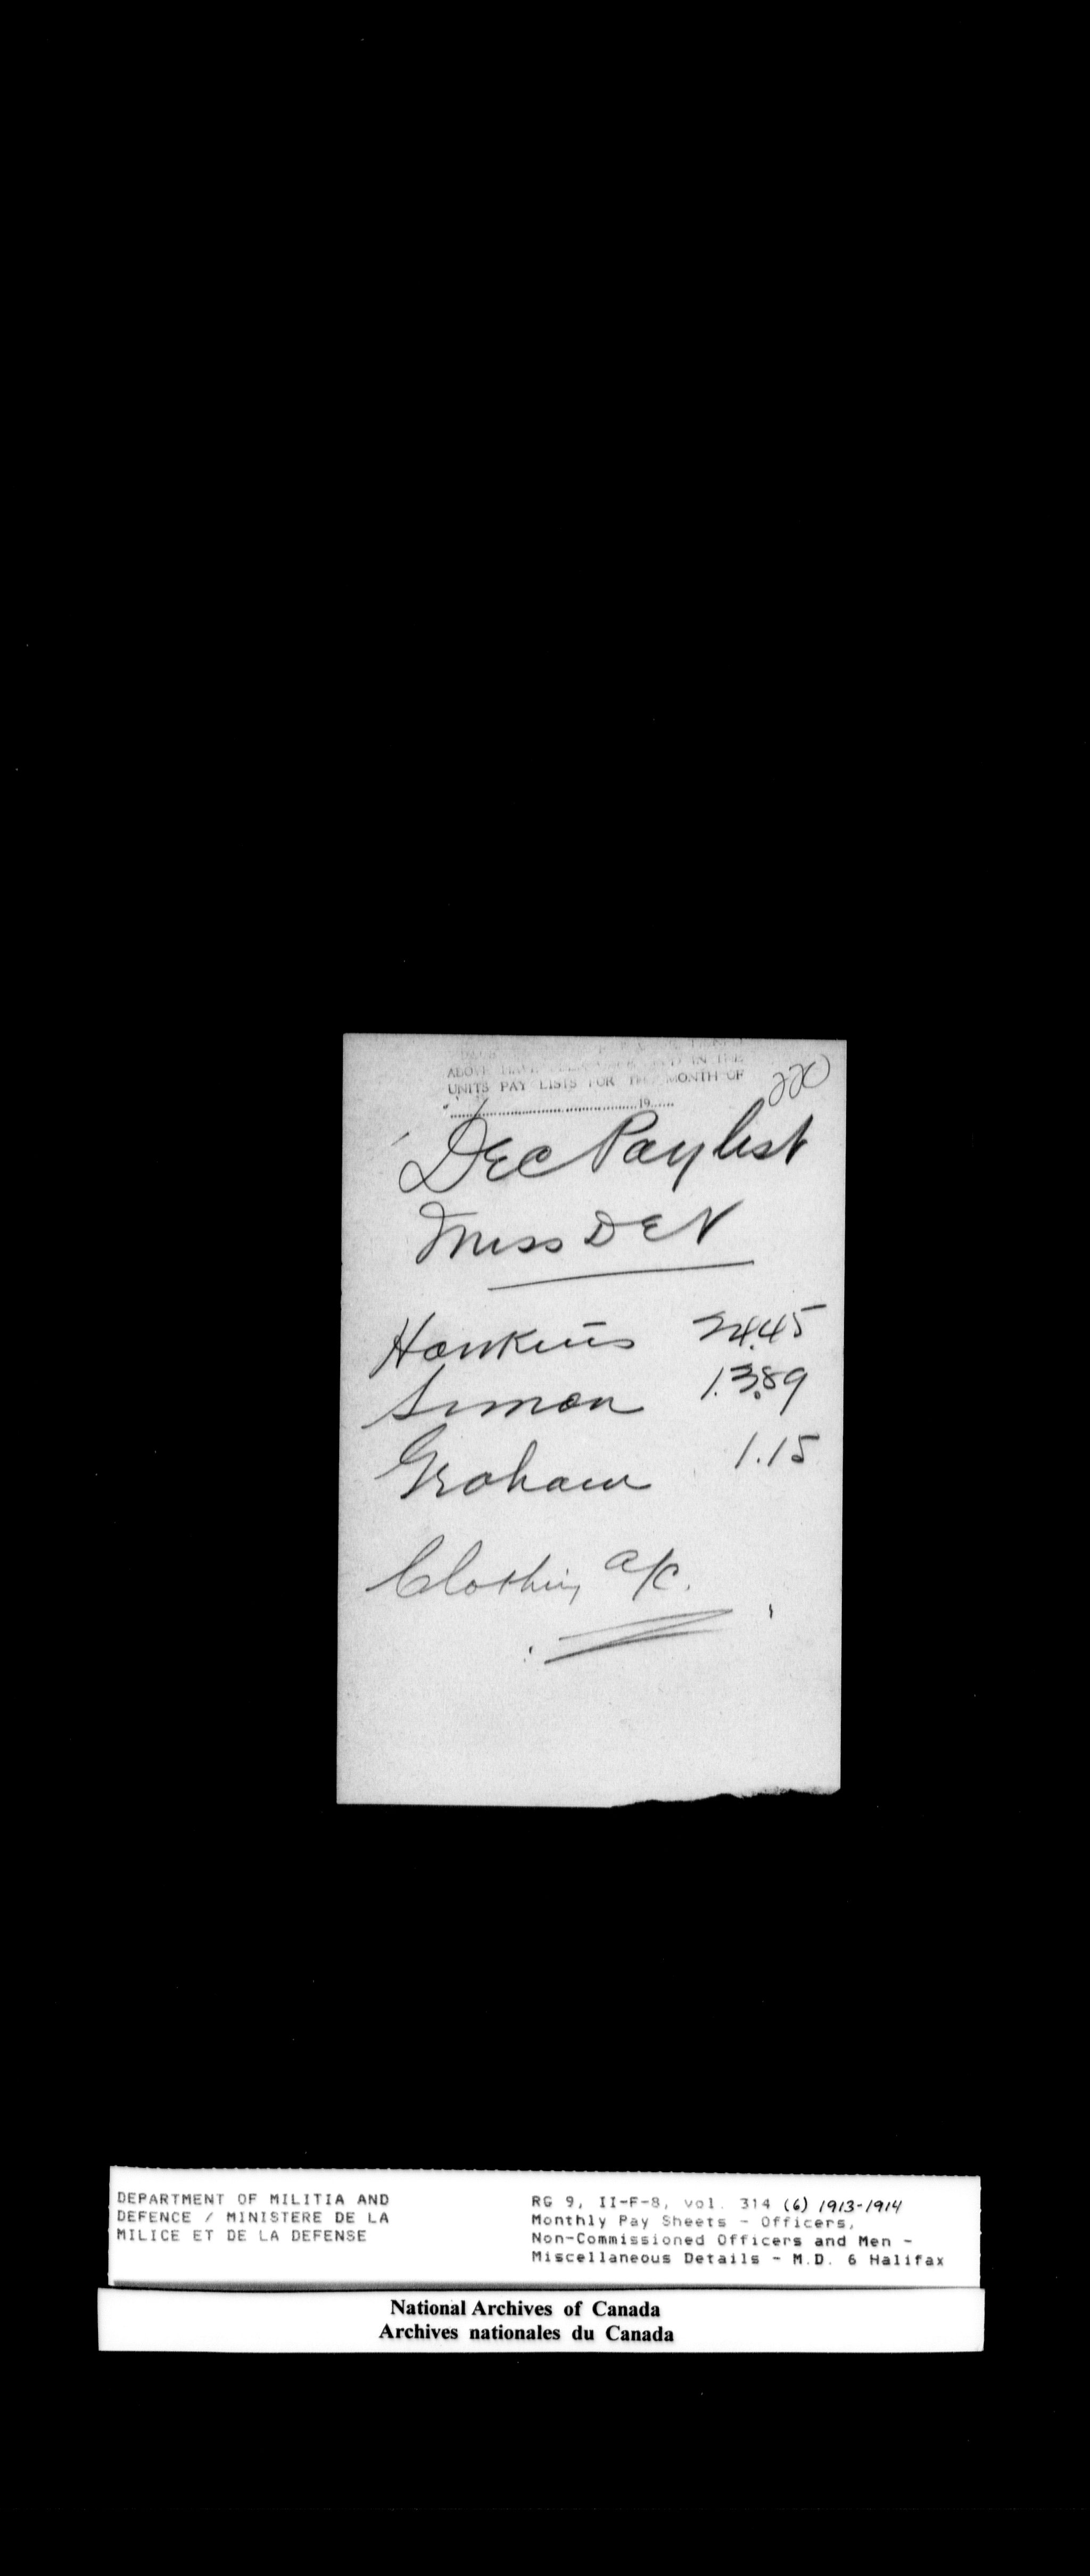 ABOVE HAVE IN THE
UNITS PAY LISTS FOR THE MONTH OF
19
220
Dec Paylist
Miss DEN
Hawkins 24.45
Simon 13.89
Graham 1.15
Clothing a/c.
DEPARTMENT OF MILITIA AND
DEFENCE / MINISTERE DE LA
MILICE ET DE LA DEFENSE
RG 9, II-F-8, vol. 314 (6) 1913-1914
Monthly Pay Sheets - Officers,
Non-Commissioned Officers and Men -
Miscellaneous Details - M.D. 6 Halifax
National Archives of Canada
Archives nationales du Canada